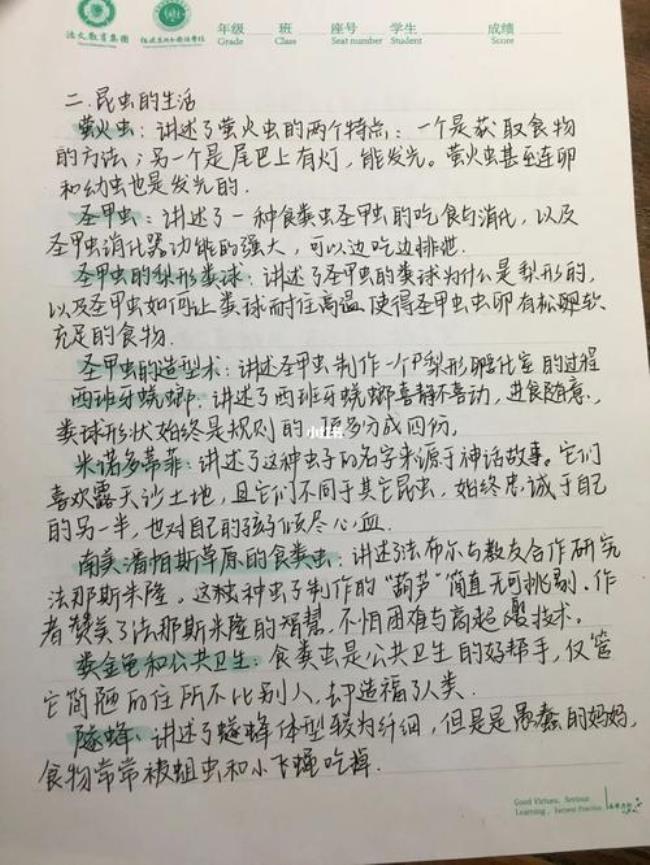 法文教育集团
年级 班 座号 学生 成绩
Grade Class Seat number Student Score
二.昆虫的生活
萤火虫：讲述了萤火虫的两个特点：一个是获取食物
的方法；另一个是尾巴上有灯，能发光。萤火虫甚至连卵
和幼虫也是发光的.
圣甲虫：讲述了一种食粪虫圣甲虫的吃食与消化，以及
圣甲虫消化器功能的强大，可以边吃边排泄.
圣甲虫的梨形粪球：讲述了圣甲虫的粪球为什么是梨形的，
以及圣甲虫如何让粪球耐住高温 使得圣甲虫虫卵有松软
充足的食物.
圣甲虫的造型术：讲述圣甲虫制作一个梨形孵化室的过程
西班牙蜣螂：讲述了西班牙蜣螂喜静不喜动，进食随意，
粪球形状始终是规则的，多分成四份，
小红书
米诺多蒂菲：讲述了这种虫子的名字来源于神话故事。它们
喜欢露天沙土地，且它们不同于其它昆虫，始终忠诚于自己
的另一半，也对自己的孩子倾尽心血.
南美潘帕斯草原的食粪虫：讲述了法布尔与教友合作研究
法那斯米隆，这种虫子制作的“葫芦”简直无可挑剔.作
者赞美了法那斯米隆的智慧，不怕困难与高超技术。
粪金龟和公共卫生：食粪虫是公共卫生的好帮手，仅管
它简陋的住所不比别人，却造福了人类.
隧蜂：讲述了隧蜂体型较为纤细，但是是愚蠢的妈妈，
食物常常被蛆虫和小飞蝇吃掉.
Good Virtues, Serious
Learning, Earnest Practice